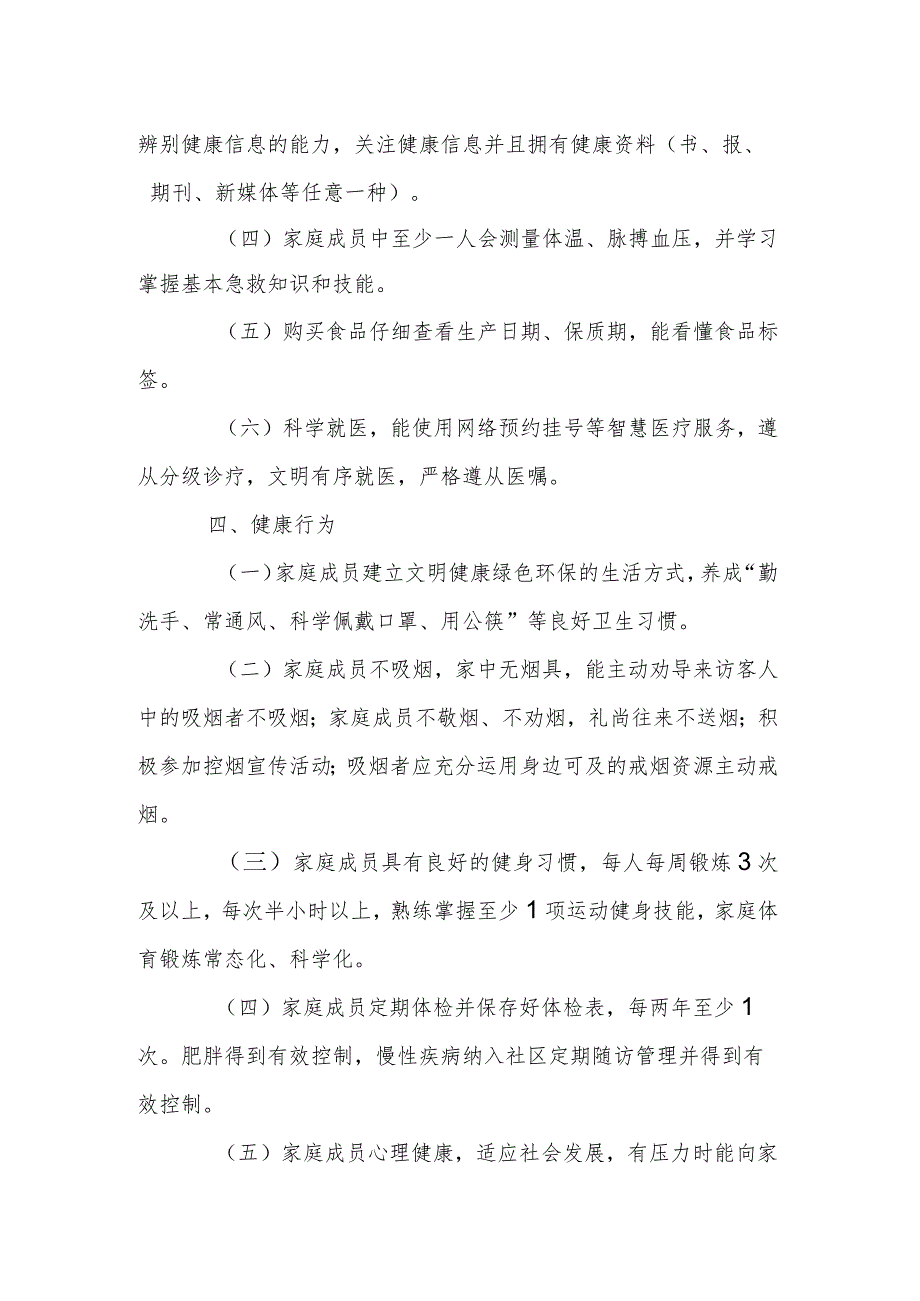 辨别健康信息的能力，关注健康信息并且拥有健康资料（书、报、
期刊、新媒体等任意一种）。
（四）家庭成员中至少一人会测量体温、脉搏血压，并学习
掌握基本急救知识和技能。
（五）购买食品仔细查看生产日期、保质期，能看懂食品标
签。
（六）科学就医，能使用网络预约挂号等智慧医疗服务，遵
从分级诊疗，文明有序就医，严格遵从医嘱。
四、健康行为
（一）家庭成员建立文明健康绿色环保的生活方式，养成“勤
洗手、常通风、科学佩戴口罩、用公筷”等良好卫生习惯。
（二）家庭成员不吸烟，家中无烟具，能主动劝导来访客人
中的吸烟者不吸烟；家庭成员不敬烟、不劝烟，礼尚往来不送烟；积
极参加控烟宣传活动；吸烟者应充分运用身边可及的戒烟资源主动戒
烟。
（三）家庭成员具有良好的健身习惯，每人每周锻炼3次
及以上，每次半小时以上，熟练掌握至少1项运动健身技能，家庭体
育锻炼常态化、科学化。
（四）家庭成员定期体检并保存好体检表，每两年至少1
次。肥胖得到有效控制，慢性疾病纳入社区定期随访管理并得到有
效控制。
（五）家庭成员心理健康，适应社会发展，有压力时能向家